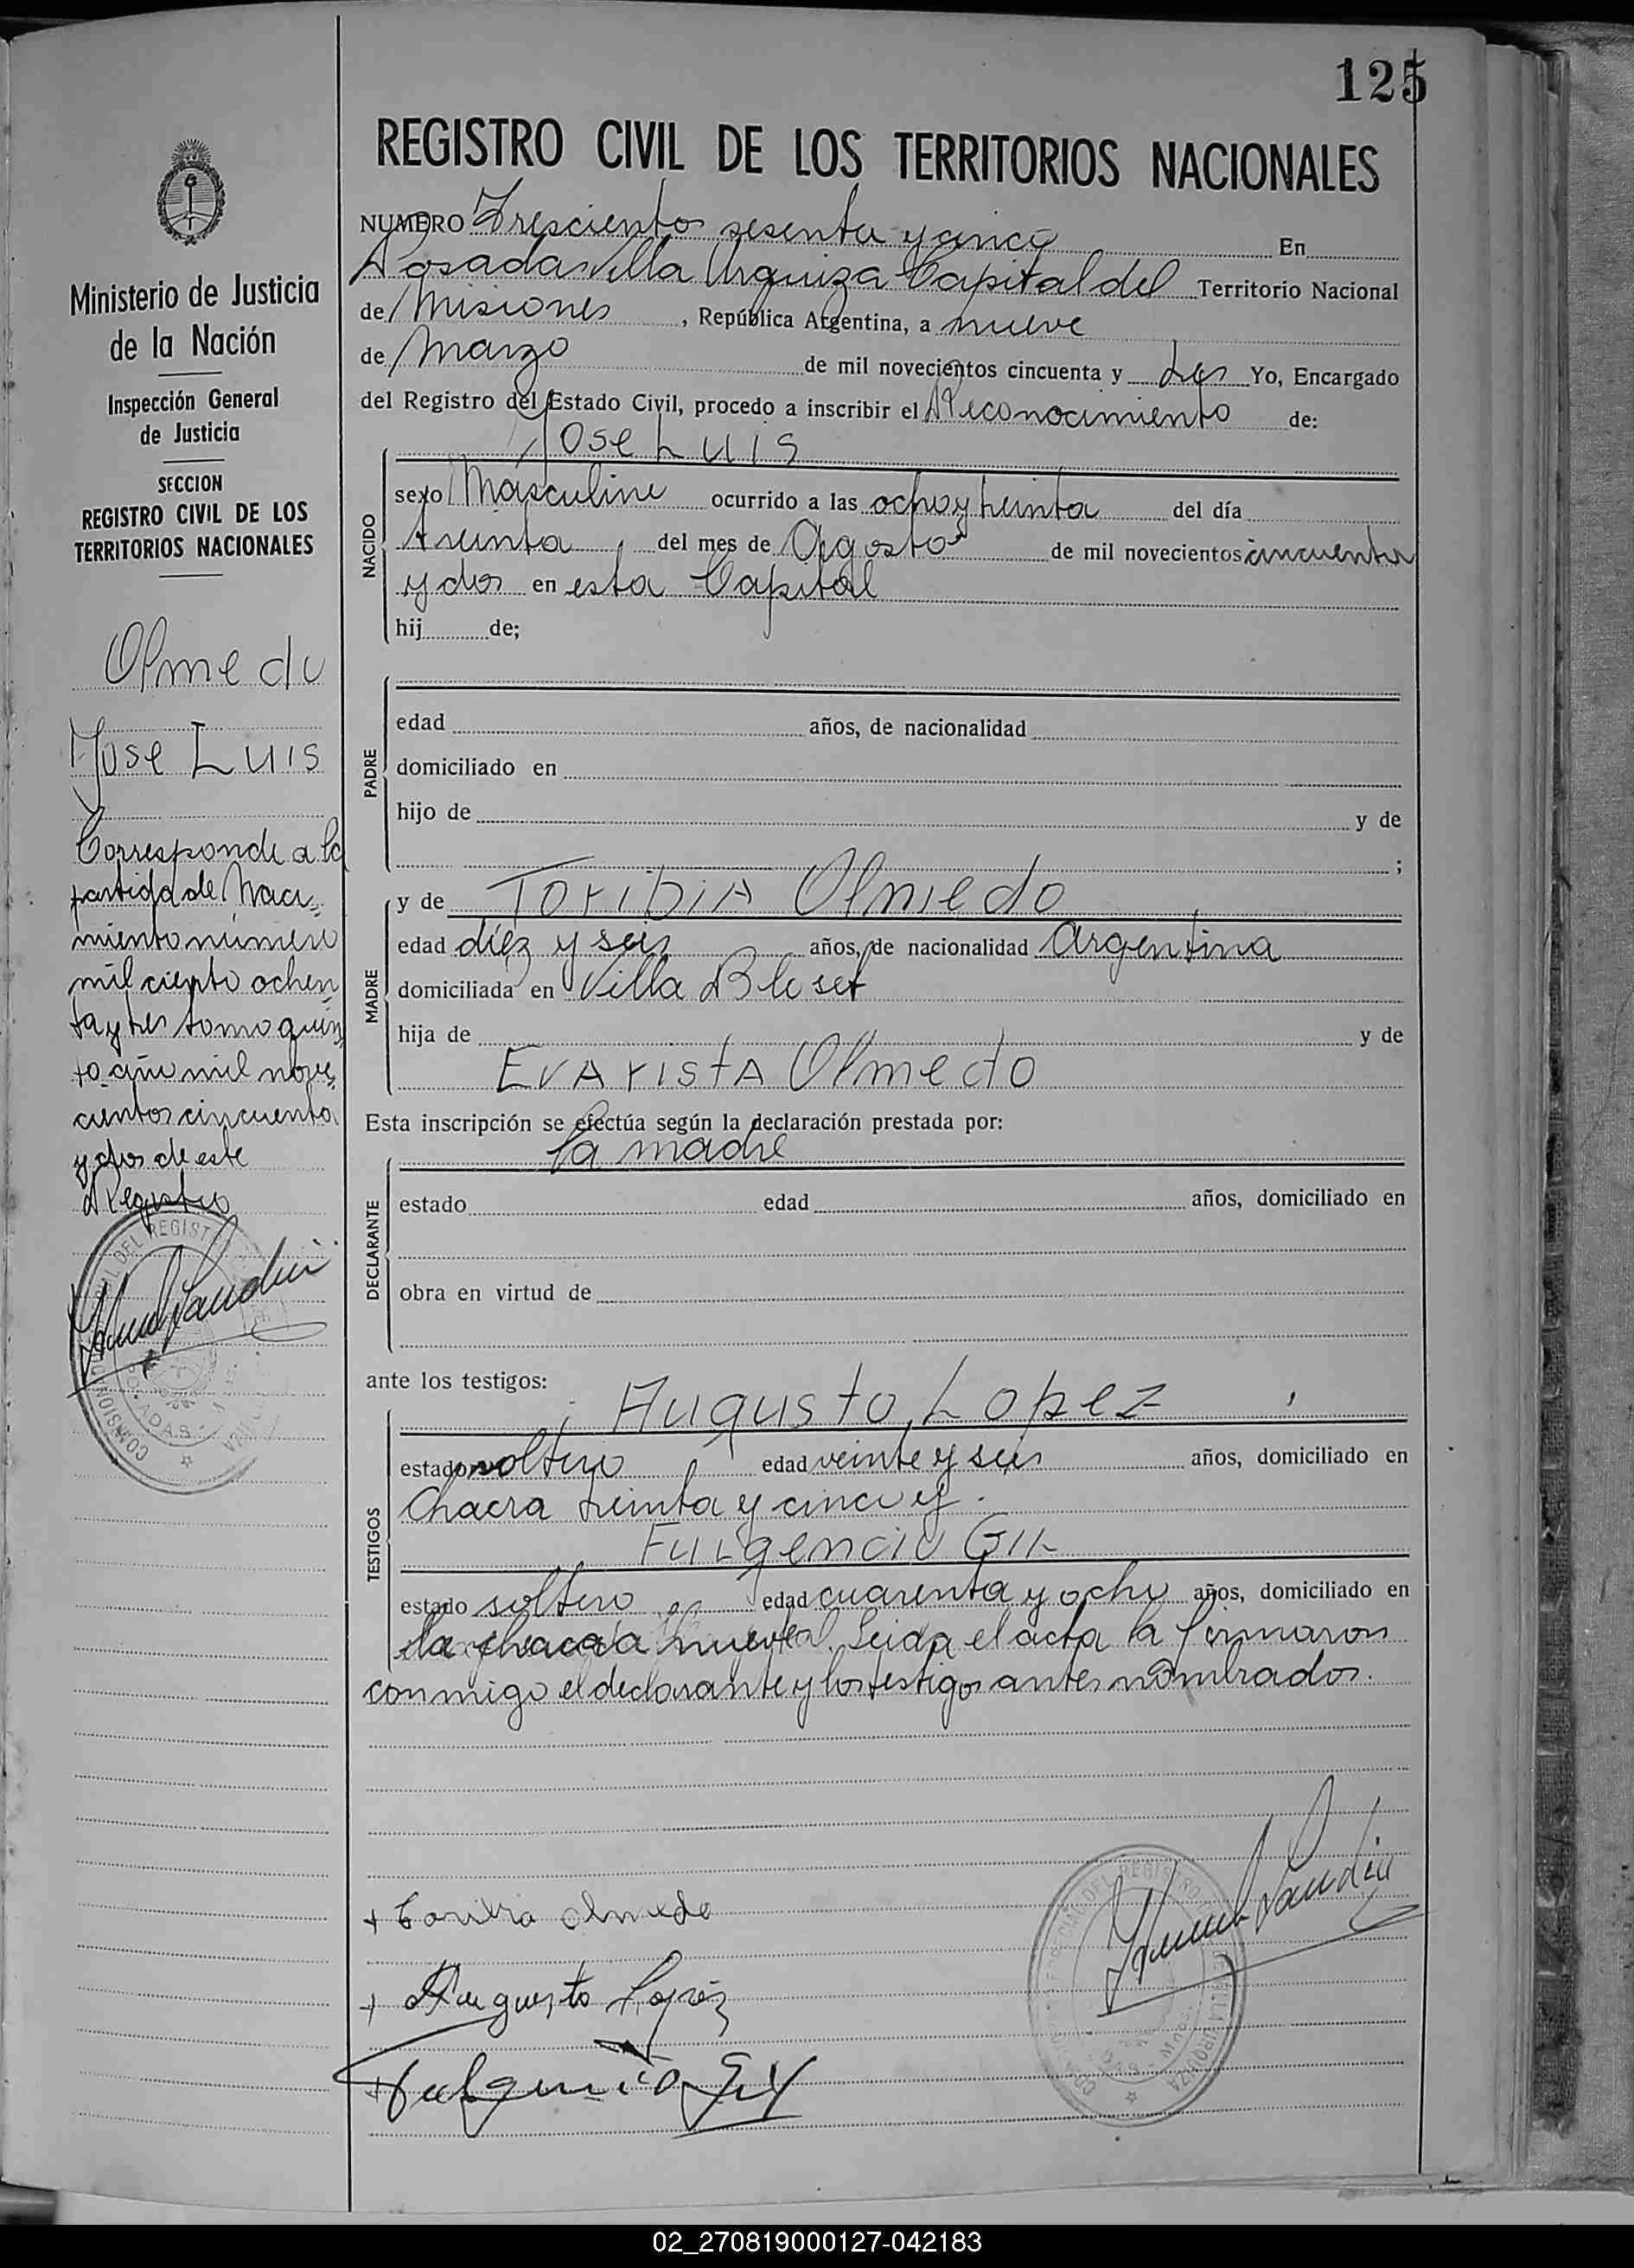 125
REGISTRO CIVIL DE LOS TERRITORIOS NACIONALES
NUMERO Trescientos sesenta y cinco En
Posadas Villa Urquiza Capital del Territorio Nacional
de Misiones, República Argentina, a nueve
de Marzo de mil novecientos cincuenta y Yo, Encargado
del Registro del Estado Civil, procedo a inscribir el Reconocimiento de:
Jose Luis
NACIDO
sexo Masculino ocurrido a las ocho y treinta del día
treinta del mes de Agosto de mil novecientos cincuenta
y dos en esta Capital
hij de;
PADRE
edad años, de nacionalidad
domiciliado en
hijo de y de
;
y de Toribia Olmedo
MADRE
edad diéz y seis años, de nacionalidad Argentina
domiciliada en Villa
hija de y de
Evarista Olmedo
Esta inscripción se efectúa según la declaración prestada por:
la madre
DECLARANTE
estado edad años, domiciliado en
obra en virtud de
ante los testigos:
Augusto Lopez
TESTIGOS
estado soltero edad veinte y seis años, domiciliado en
Chacra treinta y cinco y
Fulgencio Gil
estado soltero edad cuarenta y ocho años, domiciliado en
la Leida el acta la firmaron
conmigo el declarante y los testigos antes nombrados.
Ministerio de Justicia
de la Nación
Inspección General
de Justicia
SECCION
REGISTRO CIVIL DE LOS
TERRITORIOS NACIONALES
Olmedo
Jose Luis
Corresponde a la
partida de Naci=
miento número
mil ciento ochen
ta y tres tomo quin
to año mil nove
cientos cincuenta
y dos de este
Registro
Toribia Olmedo
Augusto López
Fulgencio Gil
02_270819000127-042183